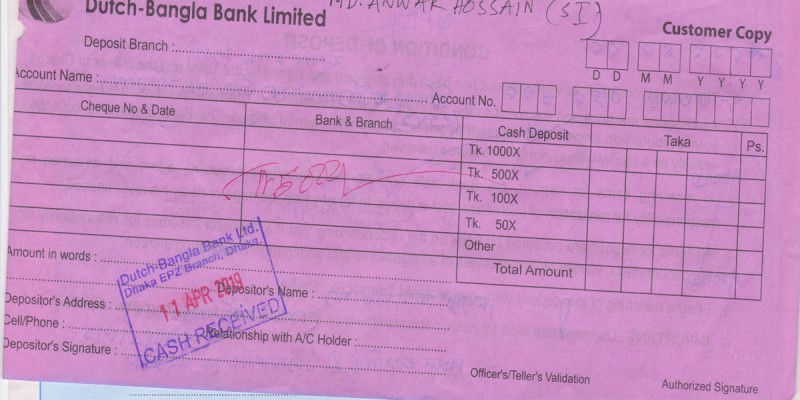 Dutch-Bangla Bank Limited
MD. ANWAR HOSSAIN (SI)
Customer Copy
Deposit Branch :
D D M M Y Y Y Y
Account Name :
Account No.
Cheque No & Date
Bank & Branch
Cash Deposit
Taka
Ps.
Tk. 1000X
Tk. 500X
Tk. 100X
Tk. 50X
Other
Total Amount
Amount in words :
Dutch-Bangla Bank Ltd.
Dhaka EPZ Branch, Dhaka.
11 APR 2019
CASH RECEIVED
Depositor's Name :
Depositor's Address :
Cell/Phone :
Relationship with A/C Holder :
Depositor's Signature :
Officer's/Teller's Validation
Authorized Signature